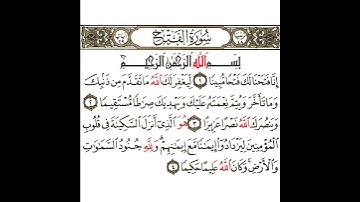 سُورَةُ الفَتْحِ
بِسْمِ اللَّهِ الرَّحْمَٰنِ الرَّحِيمِ
إِنَّا فَتَحْنَا لَكَ فَتْحًا مُبِينًا ١ لِيَغْفِرَ لَكَ اللَّهُ مَا تَقَدَّمَ مِنْ ذَنْبِكَ
وَمَا تَأَخَّرَ وَيُتِمَّ نِعْمَتَهُ عَلَيْكَ وَيَهْدِيَكَ صِرَاطًا مُسْتَقِيمًا ٢
وَيَنْصُرَكَ اللَّهُ نَصْرًا عَزِيزًا ٣ هُوَ الَّذِي أَنْزَلَ السَّكِينَةَ فِي قُلُوبِ
الْمُؤْمِنِينَ لِيَزْدَادُوا إِيمَانًا مَعَ إِيمَانِهِمْ وَلِلَّهِ جُنُودُ السَّمَاوَاتِ
وَالْأَرْضِ وَكَانَ اللَّهُ عَلِيمًا حَكِيمًا ٤